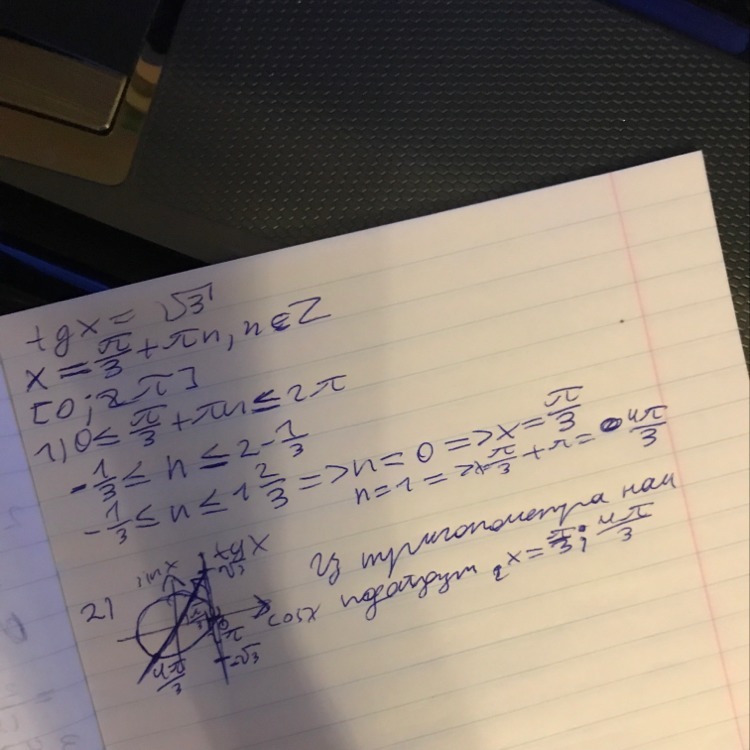 tgx = √3
x = π/3 + πn, n∈Z
[0; 2π]
1) 0 ≤ π/3 + πn ≤ 2π
-1/3 ≤ n ≤ 2 - 1/3
-1/3 ≤ n ≤ 1 2/3 => n = 0 => x = π/3
n = 1 => x = π/3 + π = 4π/3
2)
sinx
tgx
√3
cosx
π
-√3
4π/3
Из тригонометра нам
подходит x = π/3; 4π/3